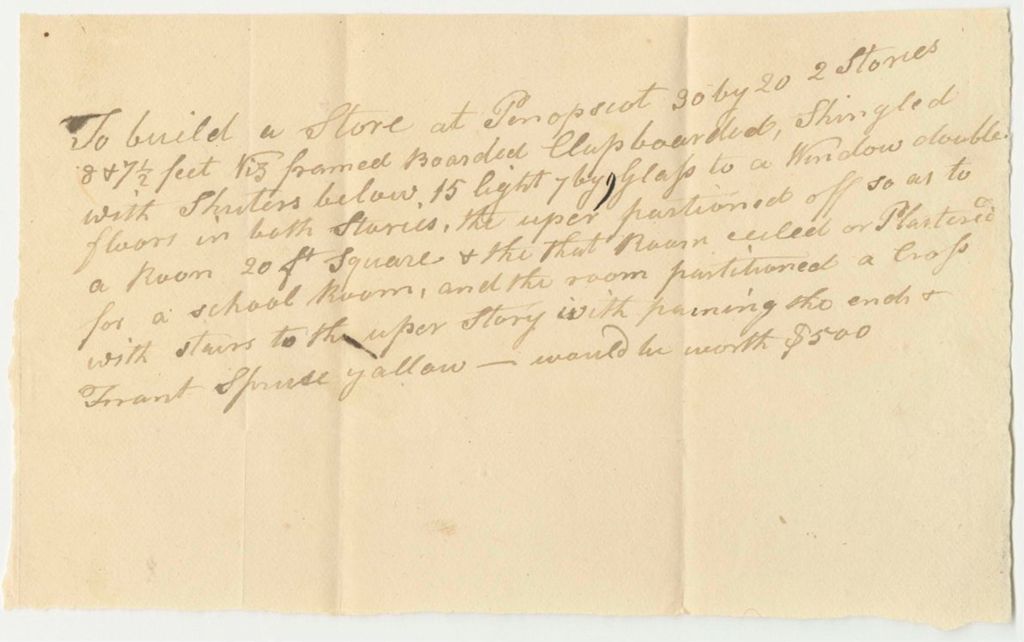 To build a Store at Penopscot 30 by 20 2 Stories
8 & 7½ feet Viz framed Boarded Clapboarded, Shingled
with Shuters below, 15 light 7 by 9 Glass to a Window double
floors in both Stories, the uper partioned off so as to
a Room 20 ft Square & the that Room ceiled or Plastered
for a school Room, and the room partitioned a Cross
with stairs to the uper Story with paining the ends &
Frant Spruse yallow — would be worth $500